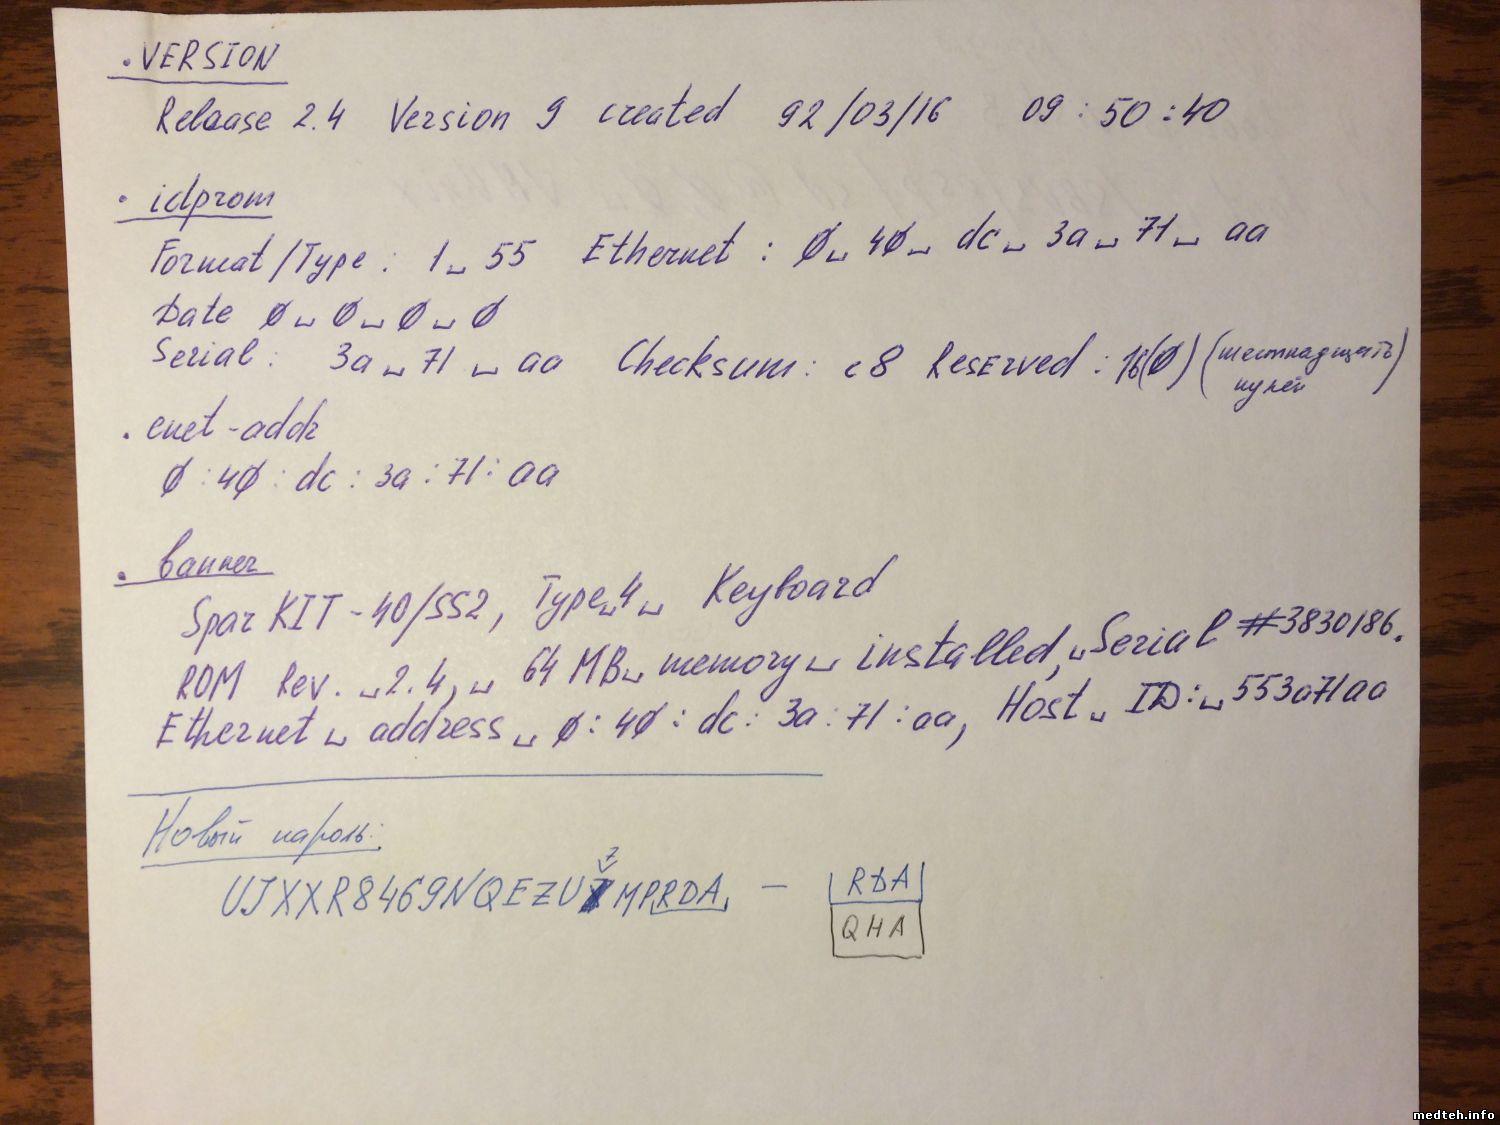 . VERSION
Release 2.4 Version 9 created 92/03/16 09:50:40
. idprom
Format/Type: 1␣55 Ethernet: 0␣40␣dc␣3a␣71␣aa
Date 0␣0␣0␣0
Serial: 3a␣71␣aa Checksum: c8 Reserved: 16(0) (шестнадцать
нулей)
. enet-addr
0:40:dc:3a:71:aa
. banner
SparKIT-40/SS2, Type␣4␣ Keyboard
ROM Rev.␣2.4,␣ 64 MB␣memory␣installed,␣Serial #3830186.
Ethernet␣address␣0:40:dc:3a:71:aa, Host␣ID:␣553a71aa
Новый пароль:
7
UJXXR8469NQEZU MPRDA – RDA
QHA
medteh.info